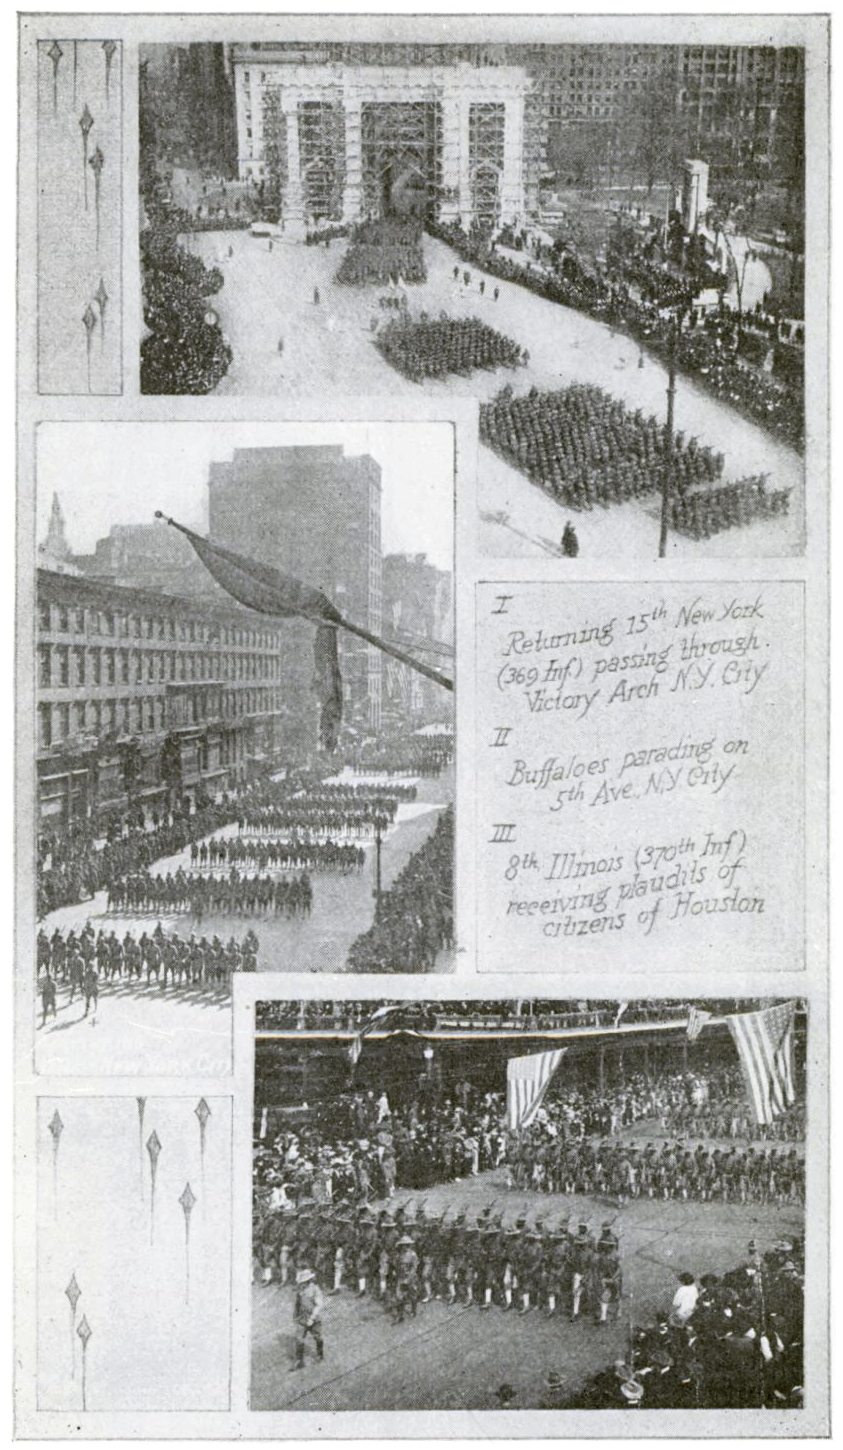 I
Returning 15th New York
(369 Inf) passing through
Victory Arch N.Y. City
II
Buffaloes parading on
5th Ave. N.Y City
III
8th Illinois (370th Inf)
receiving plaudits of
citizens of Houston
New York City